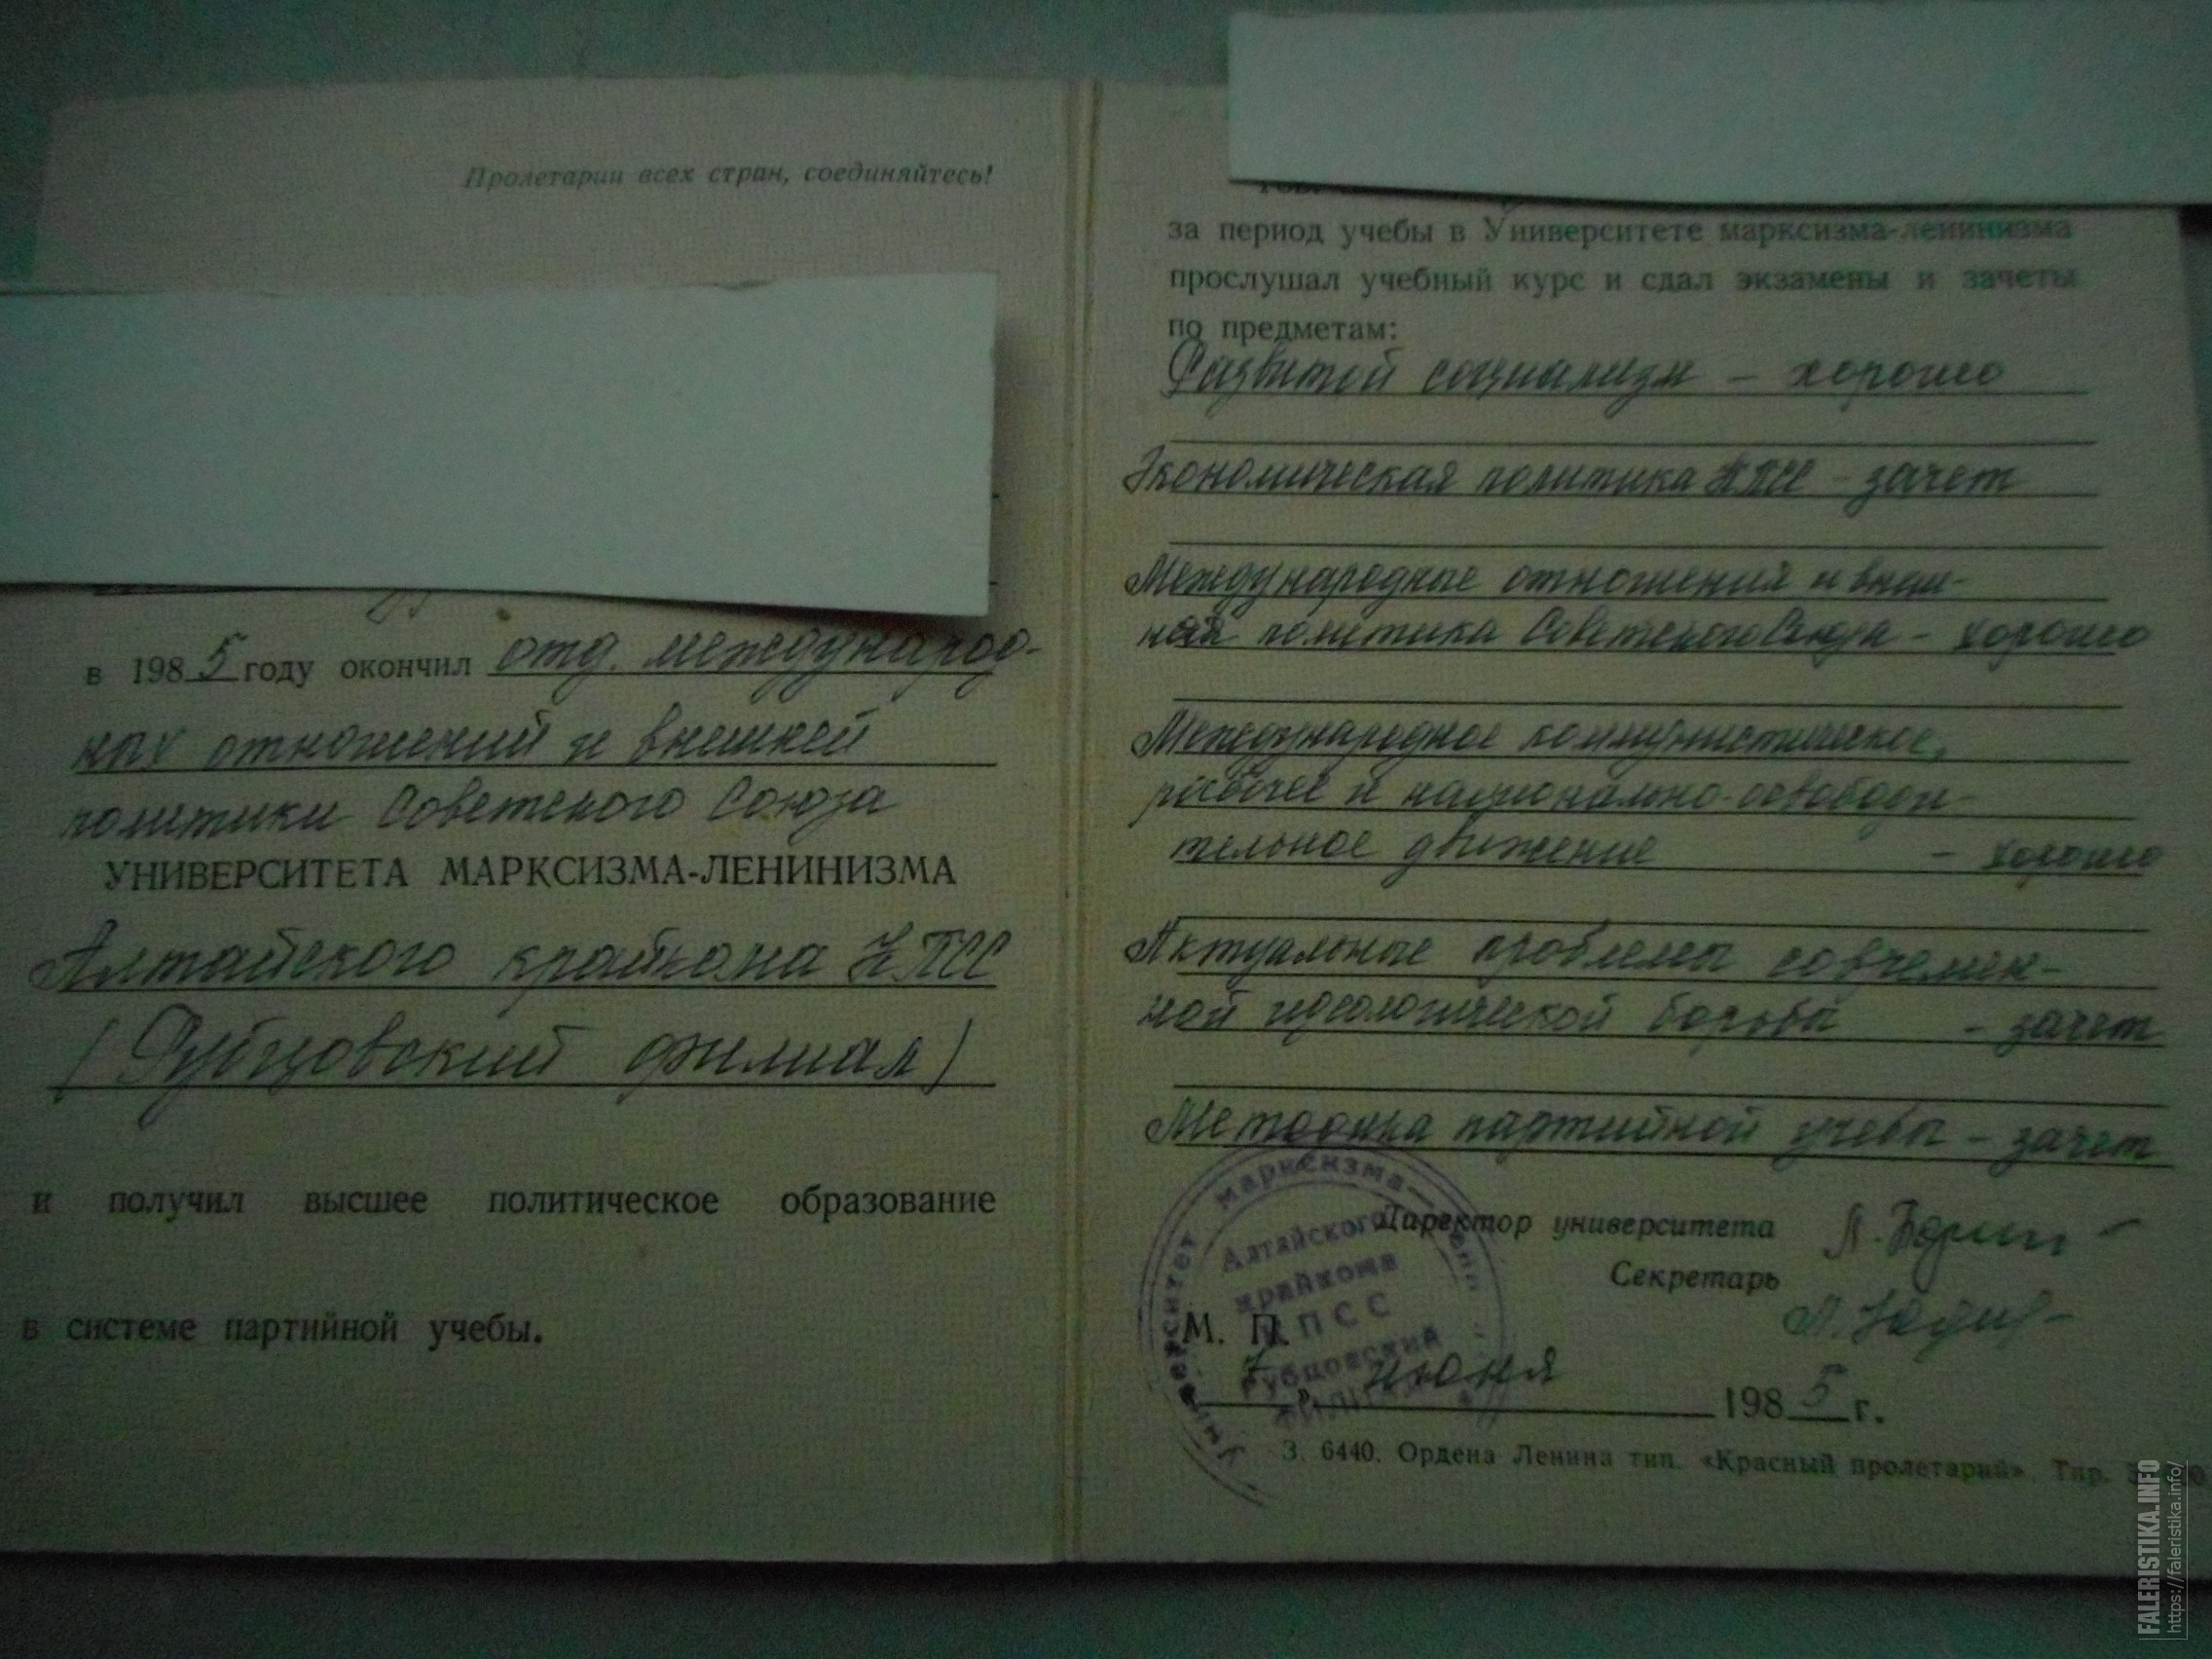 Пролетарии всех стран, соединяйтесь!
в 1985 году окончил отд. международ-
ных отношений и внешней
политики Советского Союза
УНИВЕРСИТЕТА МАРКСИЗМА-ЛЕНИНИЗМА
Алтайского крайкома КПСС
(Рубцовский филиал)
и получил высшее политическое образование
в системе партийной учебы.
за период учебы в Университете марксизма-ленинизма
прослушал учебный курс и сдал экзамены и зачеты
по предметам:
Развитой социализм - хорошо
Экономическая политика КПСС - зачет
Международные отношения и внеш-
няя политика Советского Союза - хорошо
Международное коммунистическое,
рабочее и национально-освободи-
тельное движение - хорошо
Актуальные проблемы современ-
ной идеологической борьбы - зачет
Методика партийной учебы - зачет
Директор университета
Секретарь
М. П.
7 " июня 1985 г.
Университет марксизма-лени
Алтайского
крайкома
КПСС
Рубцовский
филиал
З. 6440. Ордена Ленина тип. «Красный пролетарий». Тир.
FALERISTIKA.INFO
https://faleristika.info/